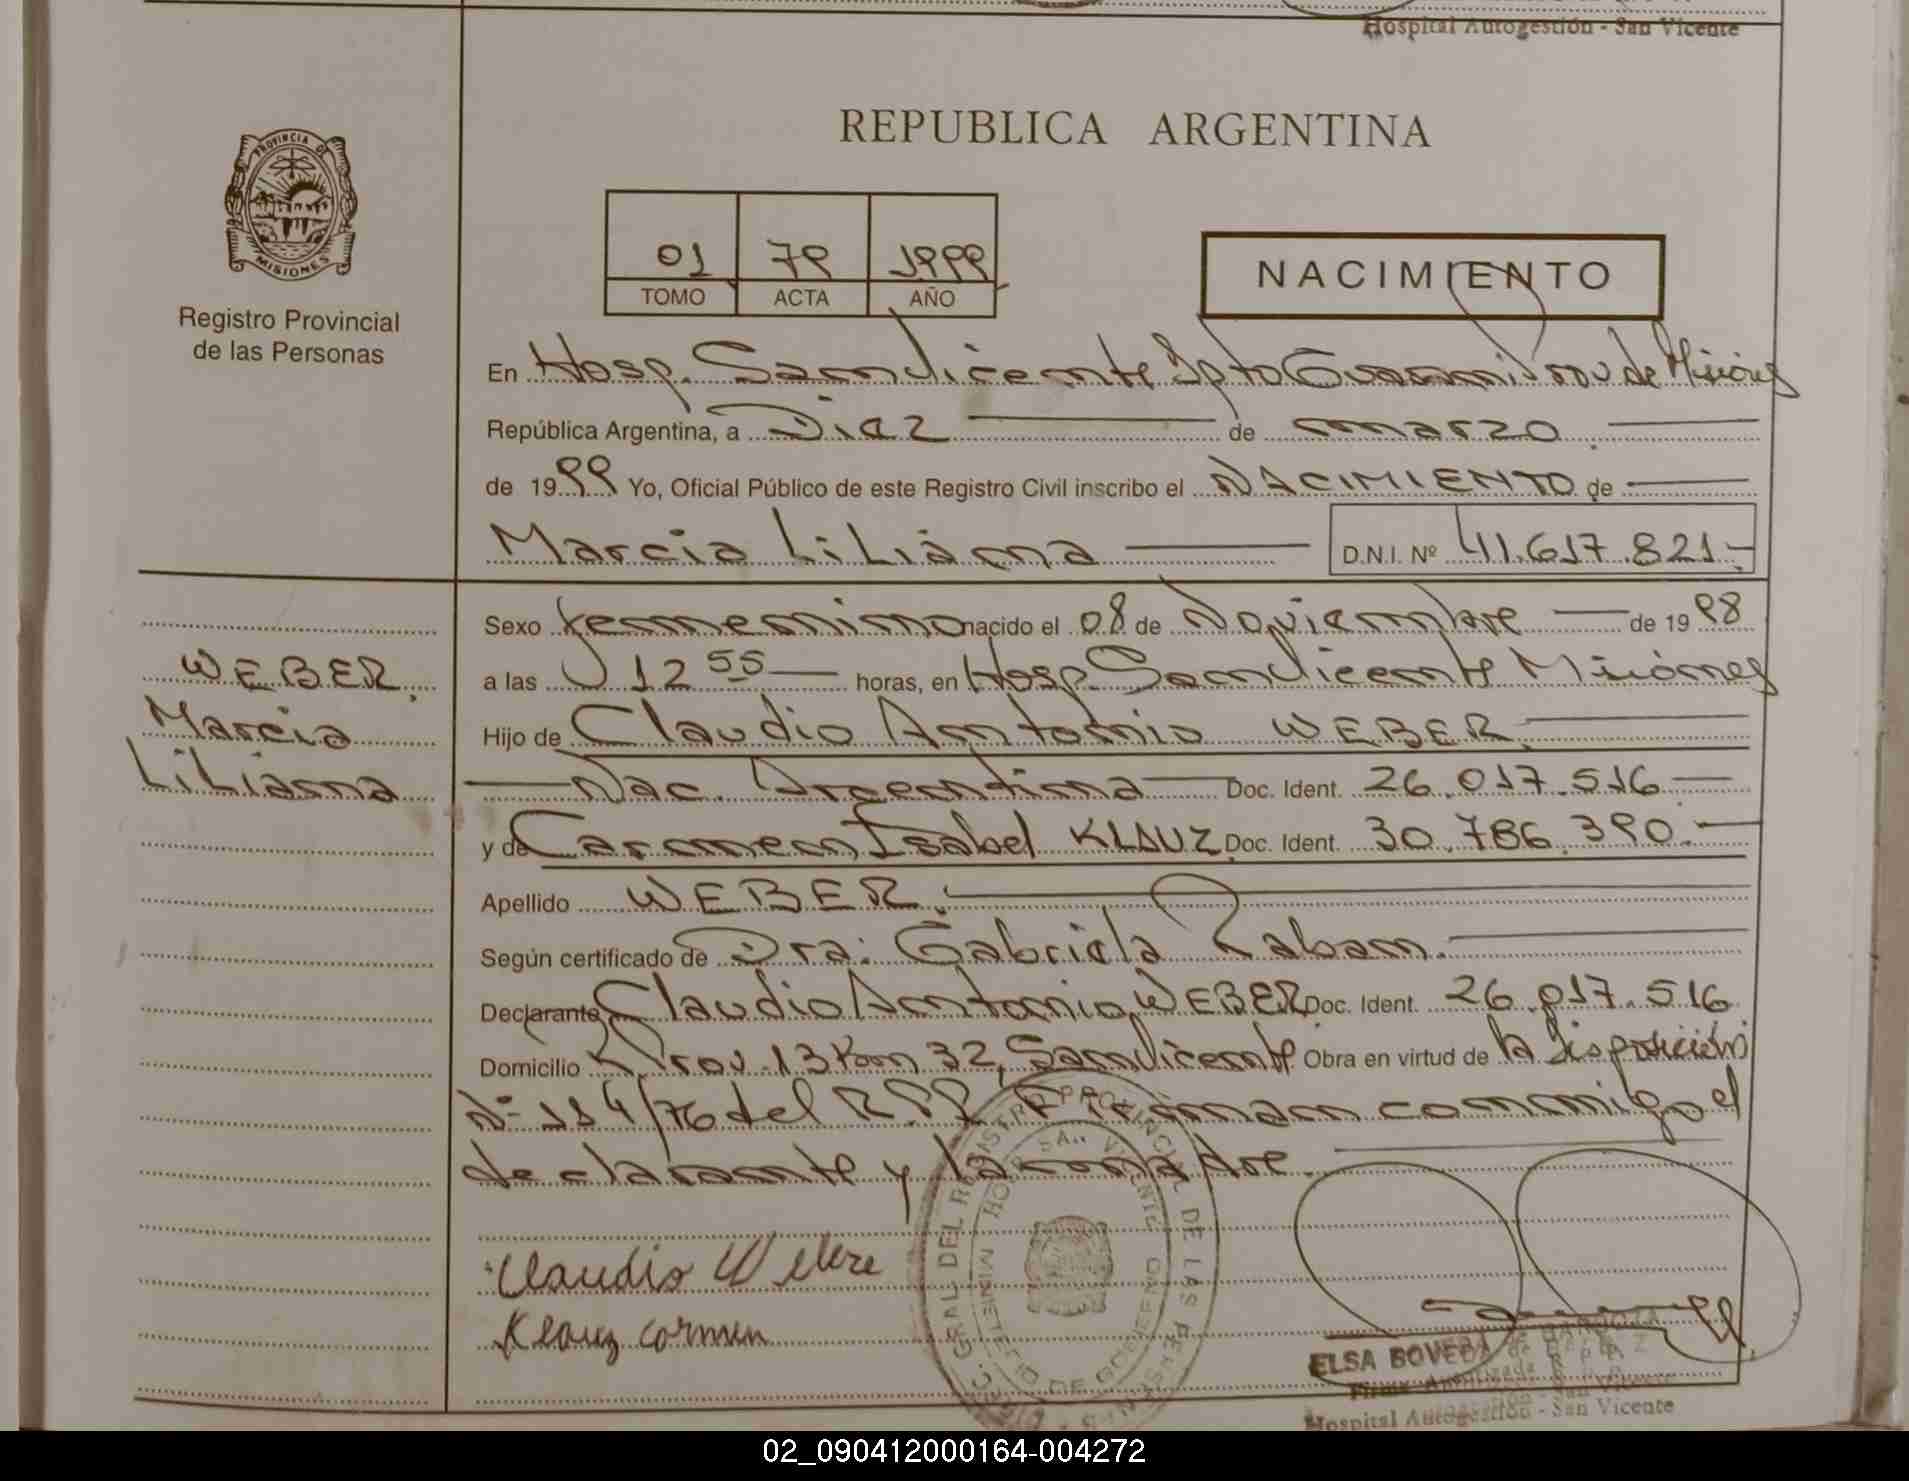 Hospital Autogestión - San Vicente
REPUBLICA ARGENTINA
PROVINCIA DE
MISIONES
Registro Provincial
de las Personas
01 79 1999
TOMO ACTA AÑO
NACIMIENTO
En Hosp. San Vicente Dpto Guaraní Prov de Misiones
República Argentina, a Diez de marzo
de 1999 Yo, Oficial Público de este Registro Civil inscribo el NACIMIENTO de
Marcia Liliana D.N.I. Nº 41.617.821.-
WEBER.
Marcia
Liliana
Sexo femenino nacido el 08 de Noviembre de 1998
a las 12 55 horas, en Hosp. San Vicente Misiones
Hijo de Claudio Antonio WEBER.
Nac. Argentina Doc. Ident. 26.017.516
y de Carmen Isabel KLAUZ. Doc. Ident. 30.786.390.-
Apellido WEBER.
Según certificado de Dra: Gabriela Raban.
Declarante Claudio Antonio WEBER Doc. Ident. 26.017.516
Domicilio R. Prov. 13 Km 32, San Vicente. Obra en virtud de la Disposición
Nº 114/76 del RPP. Firman conmigo el
declarante y la madre.
Claudio Weber
Klauz Carmen
GRAL DEL REGISTRO PROVINCIAL DE LAS PERSONAS
MINISTERIO DE GOBIERNO HOSP. SAN VICENTE
ELSA BOVEDA de
Firma Autorizada
Hospital Autogestión - San Vicente
02_090412000164-004272